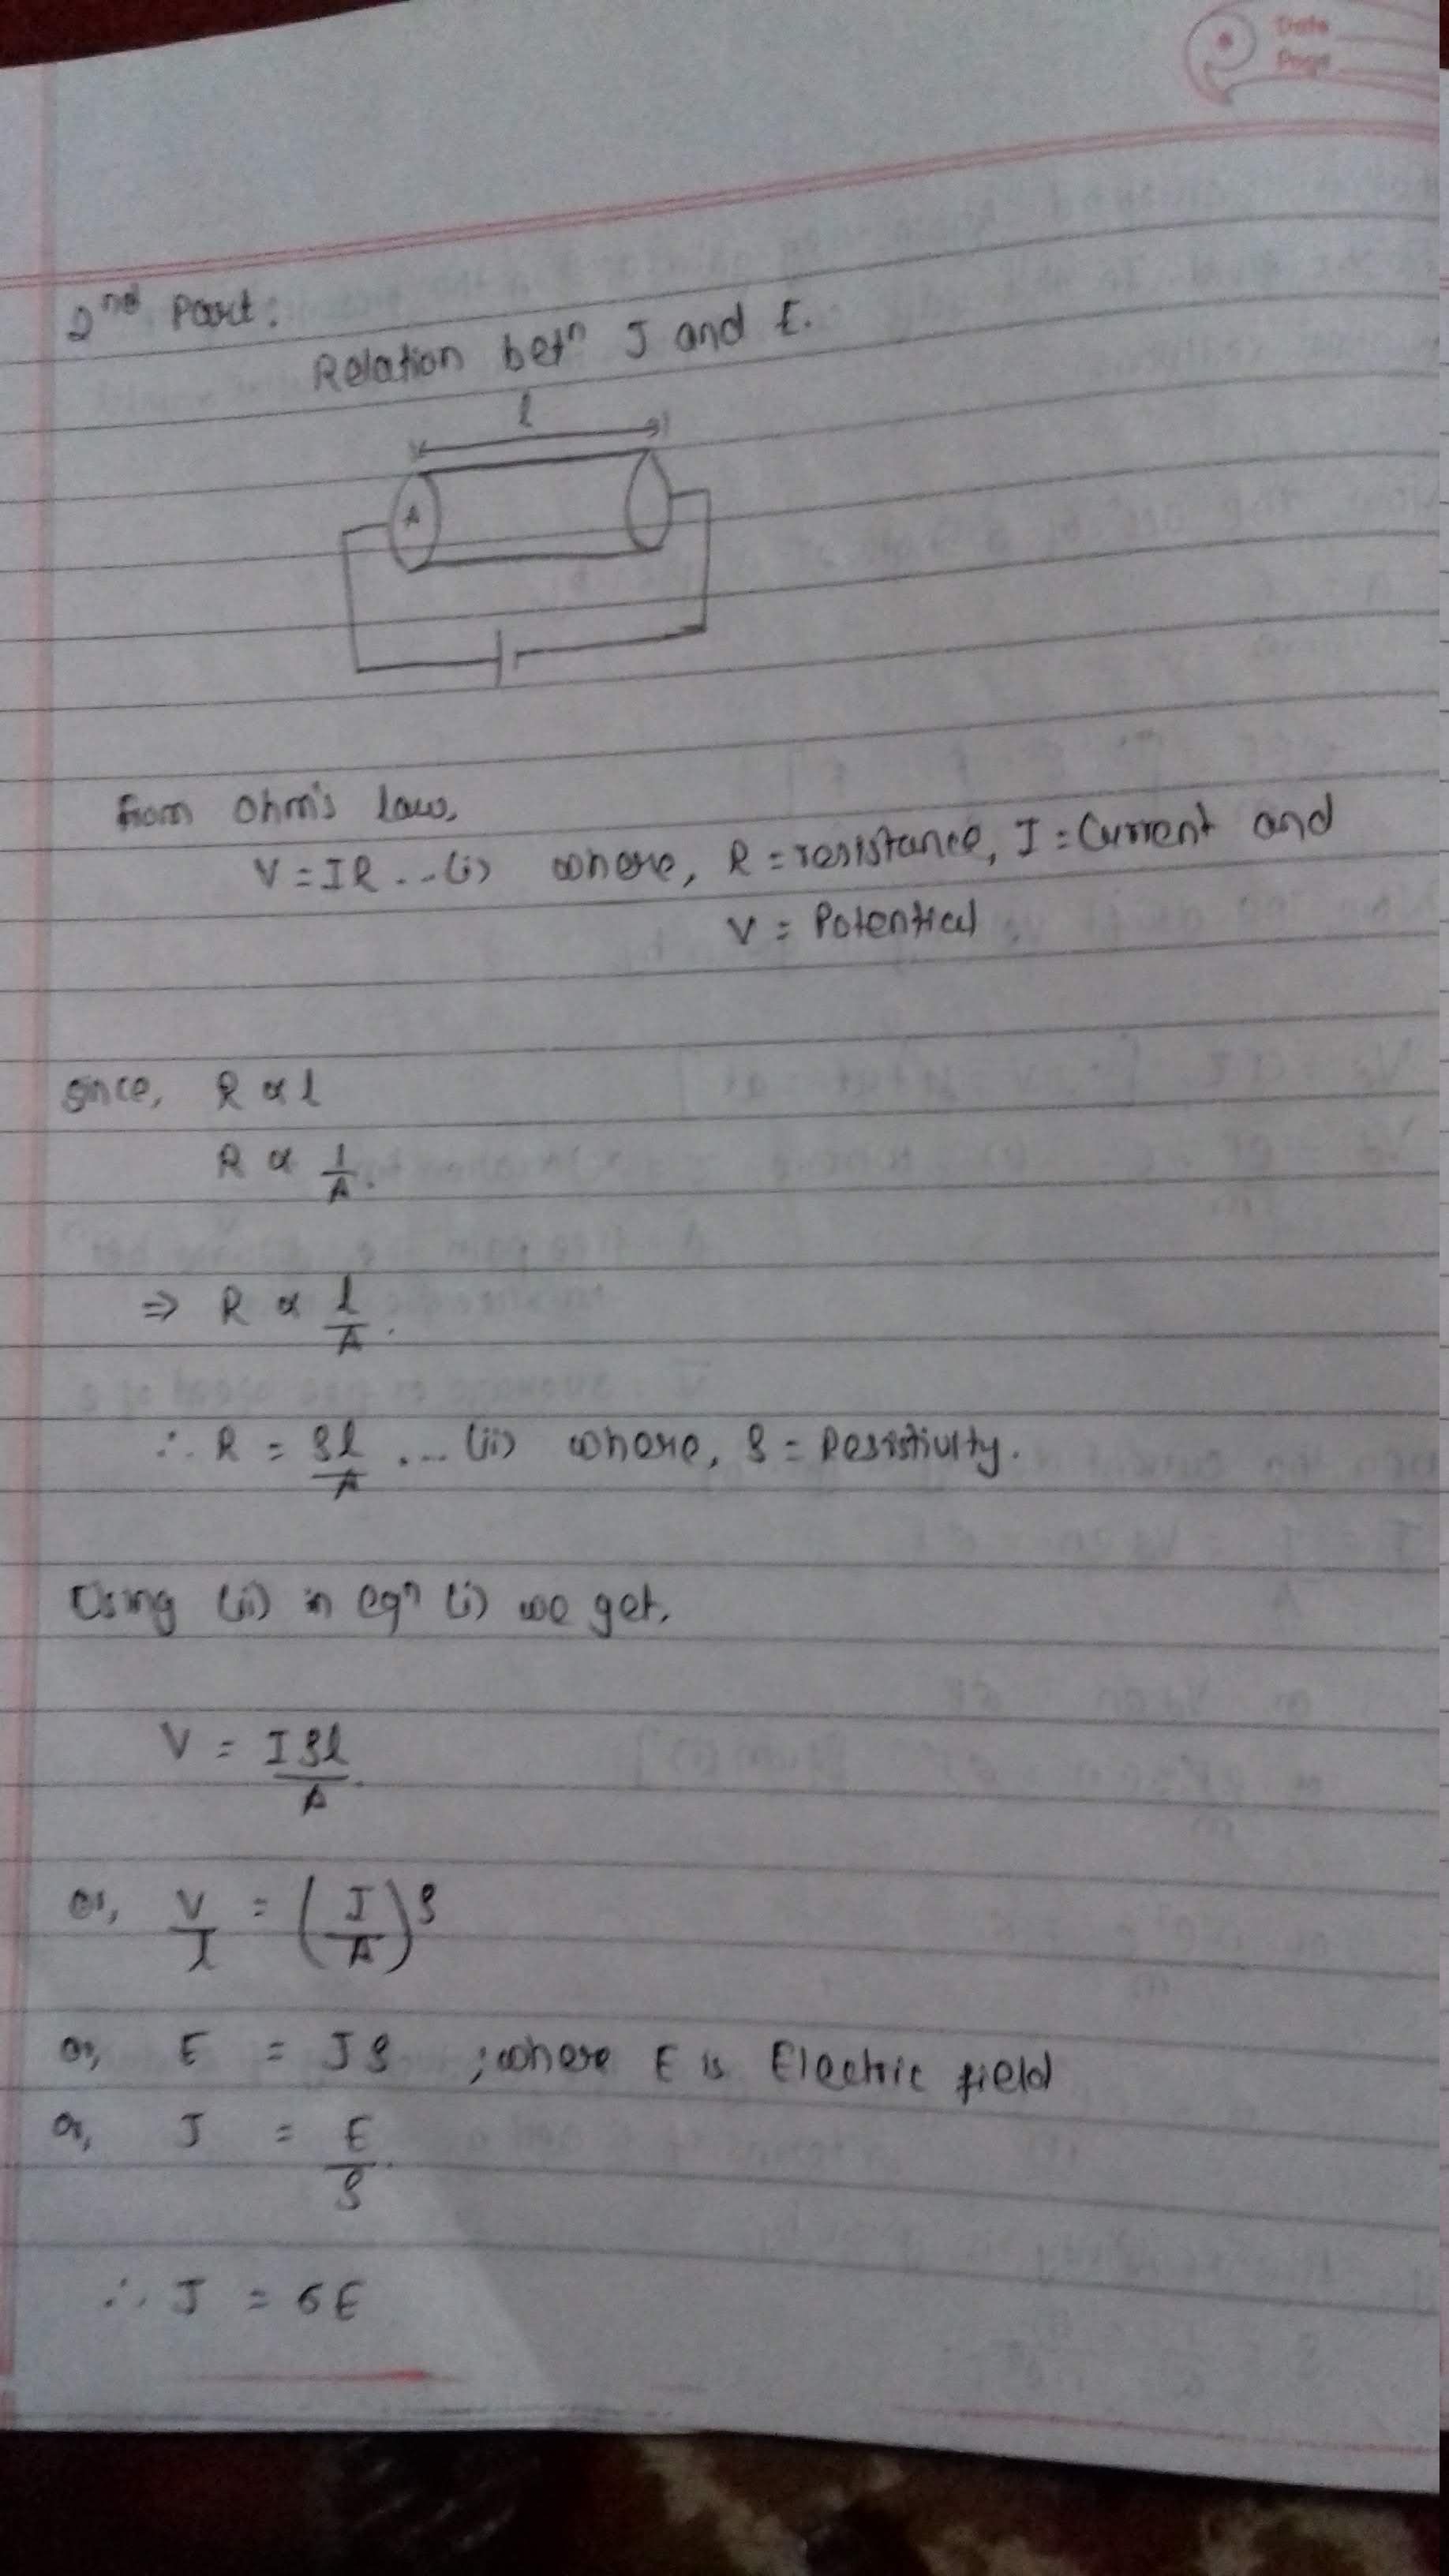 Date
Page
2nd Part:
Relation betn J and E.
l
A
from Ohm's law,
V = IR ...(i) where, R = resistance, I = Current and
V = Potential
Since, R ∝ l
R ∝ 1/A.
⇒ R ∝ l/A.
∴ R = ρl/A ...(ii) where, ρ = Resistivity.
Using (ii) in eqn (i) we get,
V = Iρl/A.
or, V/l = (I/A)ρ
or, E = Jρ ; where E is Electric field
or, J = E/ρ.
∴ J = σE